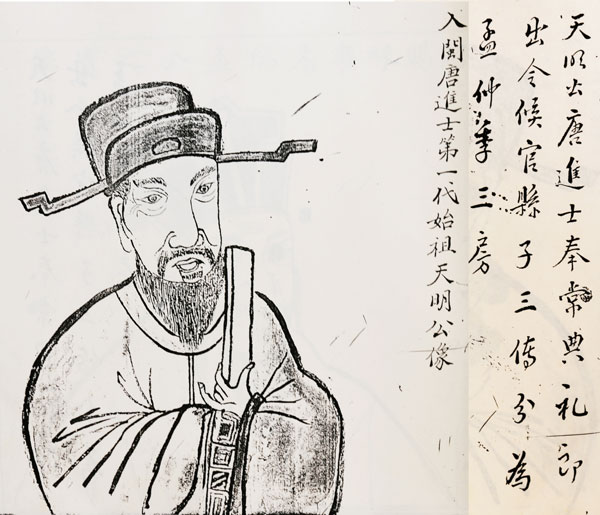 天明公唐進士奉常典礼郎
出令候官縣子三傳分為
孟仲季三房
入閩唐進士第一代始祖天明公像